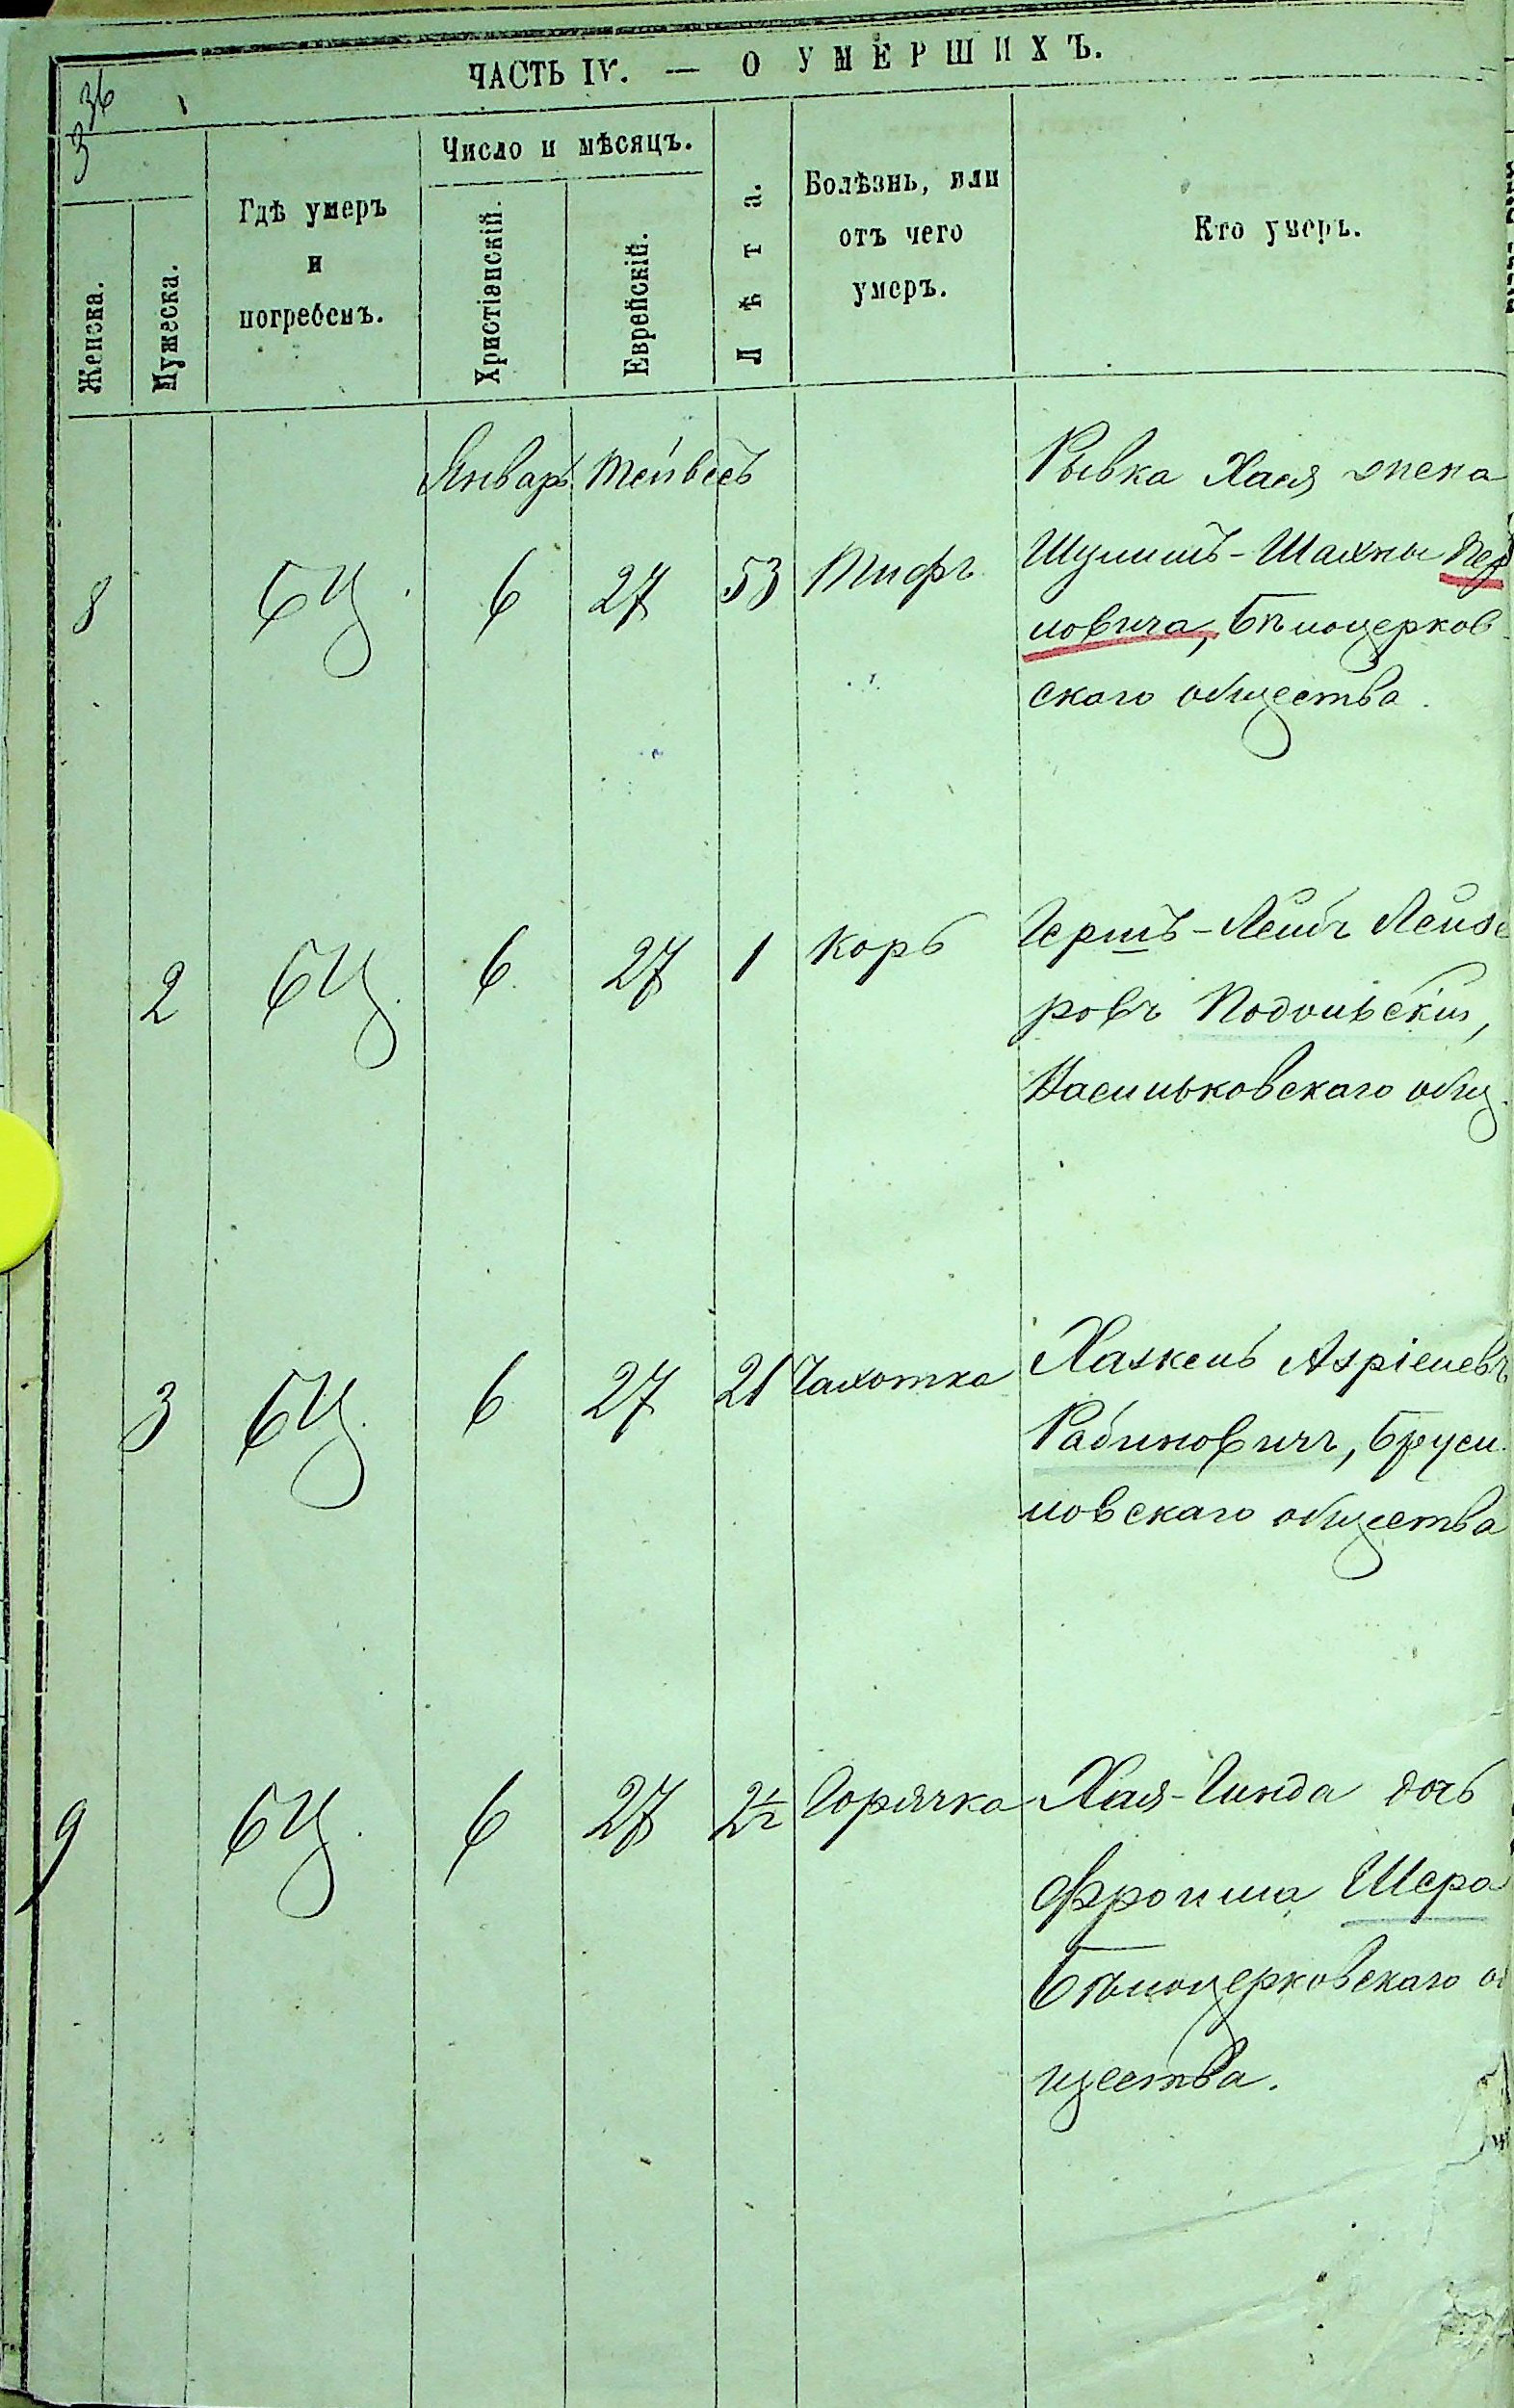 36
3
ЧАСТЬ IV. — О УМЕРШИХЪ.
Женска.
Мужеска.
Гдѣ умеръ
и
погребенъ.
Число и мѣсяцъ.
Христіанскій.
Еврейскій.
Лѣта.
Болѣзнь, или
отъ чего
умеръ.
Кто умеръ.
Январь Тейвесъ
Рывка Хая жена
8 БЦ. 6 27 53 Тифъ Шулимъ-Шахны
Бѣлоцерков-
скаго общества.
2 БЦ. 6 27 1 Корь Гершъ-Лейбъ Лейзе
ровъ Подольскій,
Васильковскаго общ.
3 БЦ. 6 27 21 Чахотка Хаскель Азріелевъ
Рабиновичъ, Бруси-
ловскаго общества
9 БЦ. 6 27 2½ Горячка Хая-Гинда дочь
Фроима Шера
Бѣлоцерковскаго об
щества.